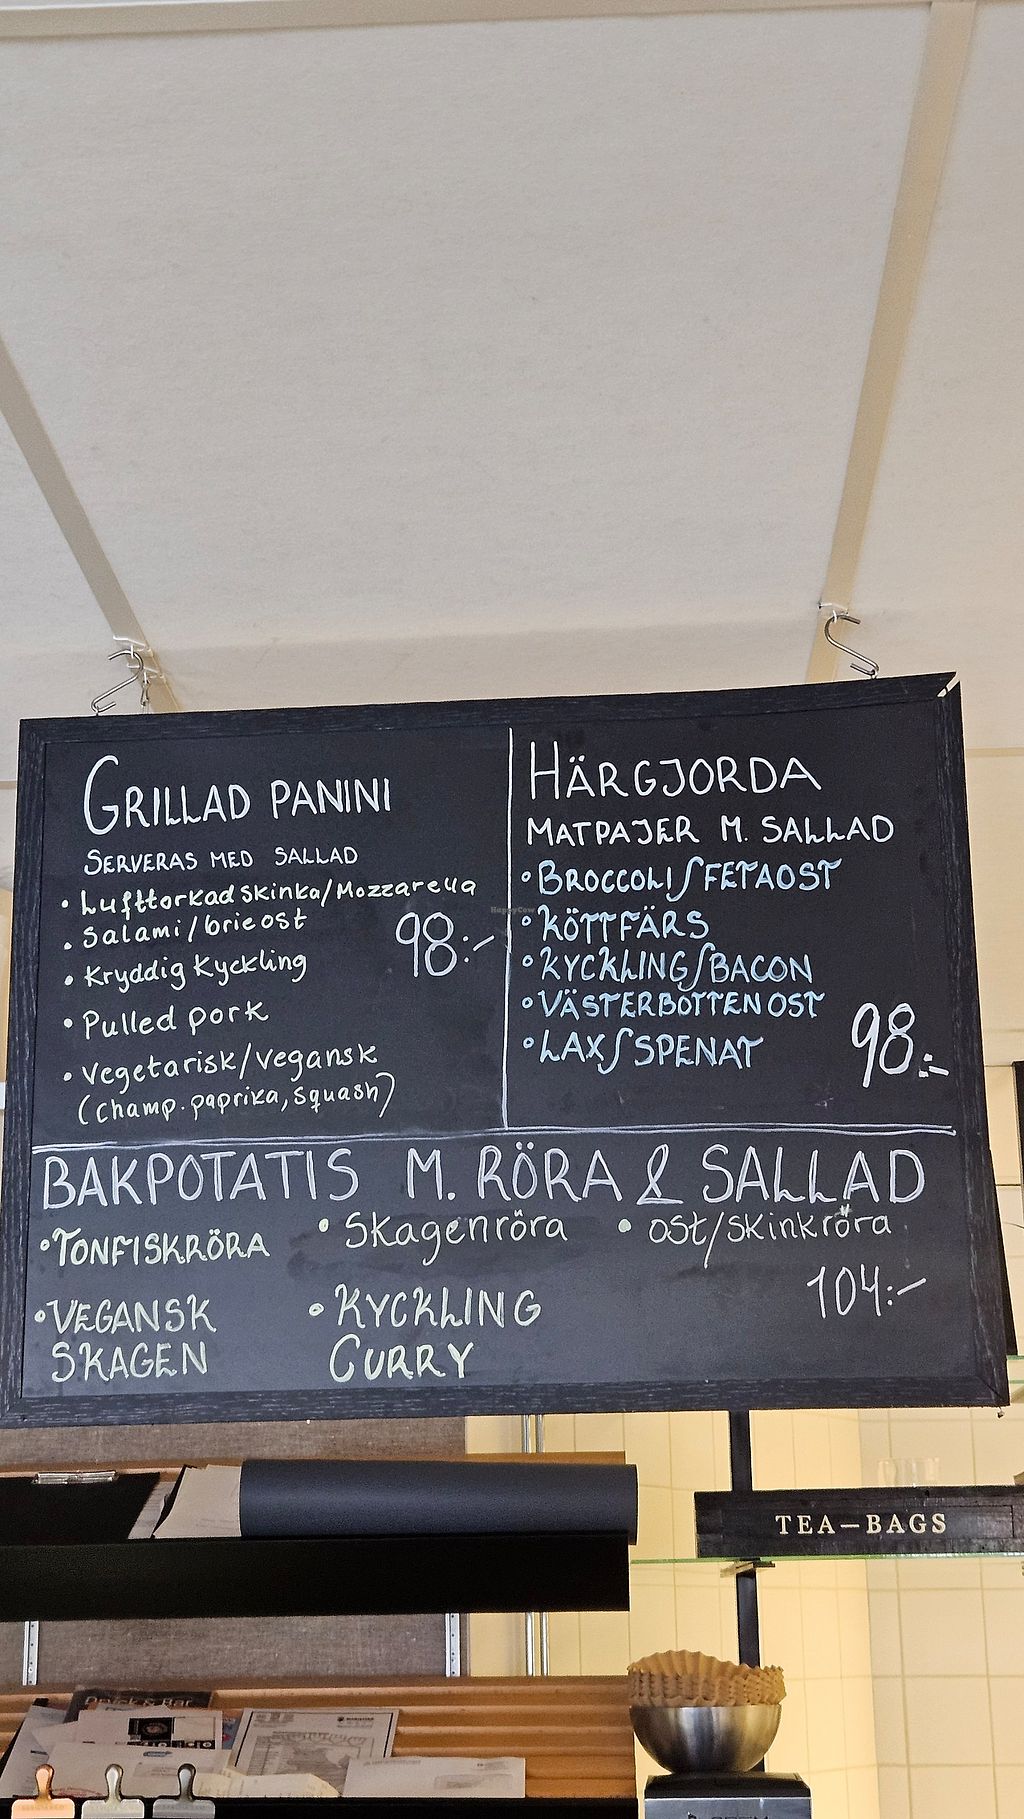 GRILLAD PANINI
SERVERAS MED SALLAD
• Lufttorkad skinka/Mozzarella
• Salami/brieost
• Kryddig Kyckling
• Pulled pork
• Vegetarisk/Vegansk
(champ. paprika, squash)
98:-
HÄRGJORDA
MATPAJER M. SALLAD
• BROCCOLI/FETAOST
• KÖTTFÄRS
• KYCKLING/BACON
• VÄSTERBOTTENOST
• LAX/SPENAT
98:-
BAKPOTATIS M. RÖRA & SALLAD
• TONFISKRÖRA
• Skagenröra
• ost/skinkröra
• VEGANSK
SKAGEN
• KYCKLING
CURRY
104:-
TEA-BAGS
HappyCow